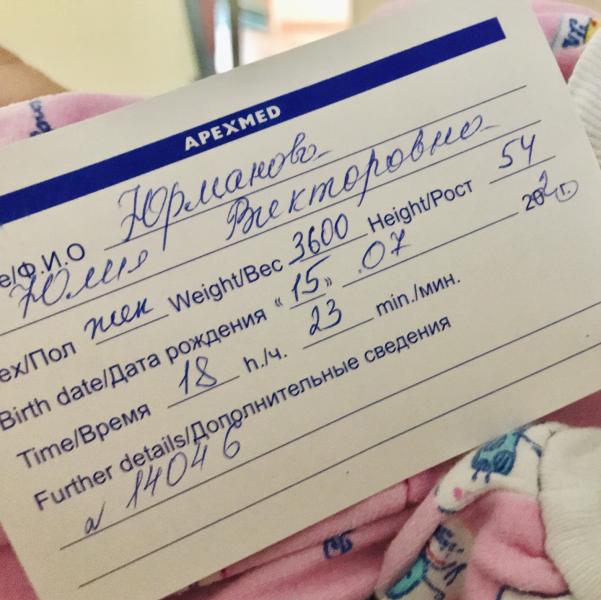 APEXMED
e/Ф.И.О Юрманова
Юлия Викторовна
ex/Пол жен Weight/Вес 3600 Height/Рост 54
Birth date/Дата рождения "15" .07 202 г.
Time/Время 18 h./ч. 23 min./мин.
Further details/Дополнительные сведения
N 14046